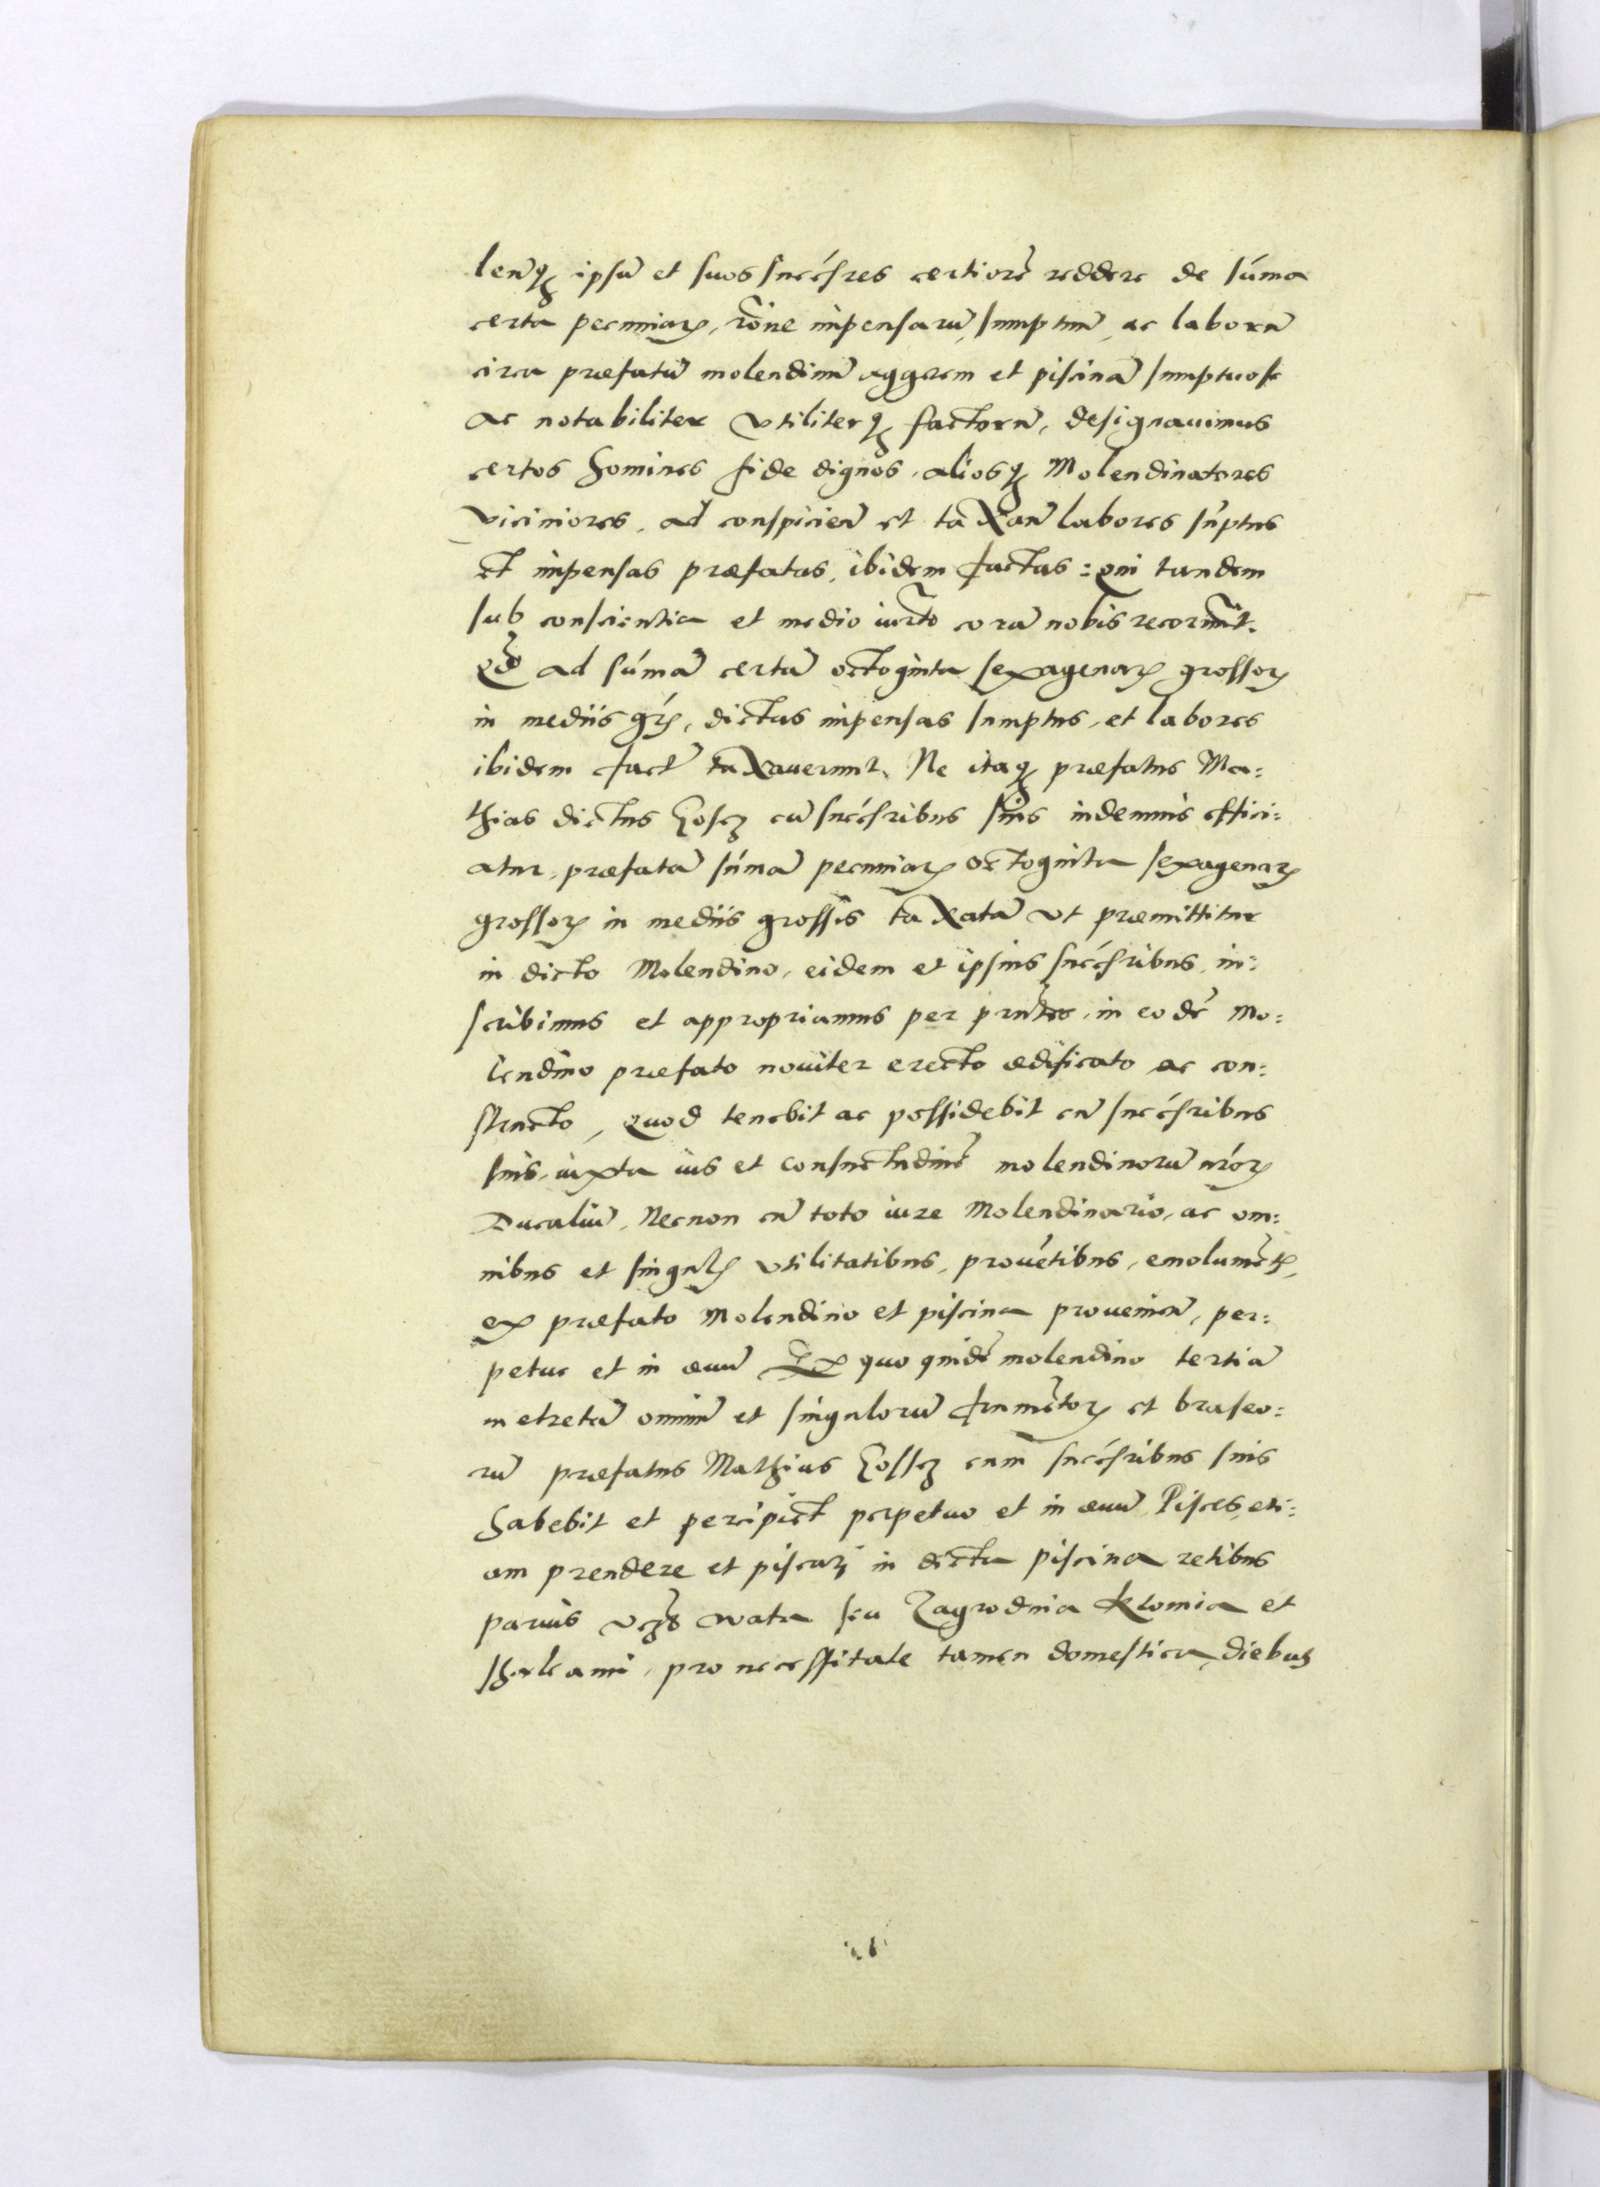 lenq(ue) ipsū et suos succ̄sres certiorē reddere de sūma
certa pecuniaꝝ, rōne impensarū, sumptuū, ac laborū
circa præfatū molendinū aggerem et piscinā sumptuose
ac notabiliter vtiliterqꝫ factorū, designauimus
certos homines fide dignos, aliosqꝫ Molendinatores
viciniores, ad conspicien̄ et taxan̄ labores sūptus
et impensas præfatas, ibidem factas: qui tandem
sub conscientia et medio iurto corā nobis recorūnt.
Qd̄ ad sūmā certā octoginta sexagenaꝝ grossoꝝ
in mediis gr̄ꝝ, dictas impensas sumptus, et labores
ibidem fact̄ taxauerunt, Ne itaqꝫ præfatus Ma:
thias dictus Hoscz cū succ̄sribus suis indemnis effici:
atur, præfatā sūmā pecuniaꝝ octoginta sexagenaꝝ
grossoꝝ in mediis grossis taxatā vt præmittitur
in dicto Molendino, eidem et ipsius succ̄sribus, in:
scribimus et appropriamus per prn̄tes, in eodē Mo:
lendino præfato nouiter erecto ædificato ac con:
structo, quod tenebit ac possidebit cū succ̄sribus
suis, iuxta ius et consuetudinē molendinorū nr̄oꝝ
Ducaliū, Necnon cū toto iure Molendinario, ac om:
nibus et singulꝭ vtilitatibus, prouētibus, emolumētꝭ,
ex præfato Molendino et piscina prouenien̄, per:
petue et in æuū Ex quo quidē molendino tertiā
metretā omniū et singulorū frumētoꝝ et braseo:
rū præfatus Mathias Hosscz cum succ̄sribus suis
habebit et percipiet perpetuo et in æuū Pisces, eti:
am prendere et piscari in dicta piscina retibus
paruis vcz wata seu Zagrodnia Klomia et
, pro necessitate tamen domestica, diebus